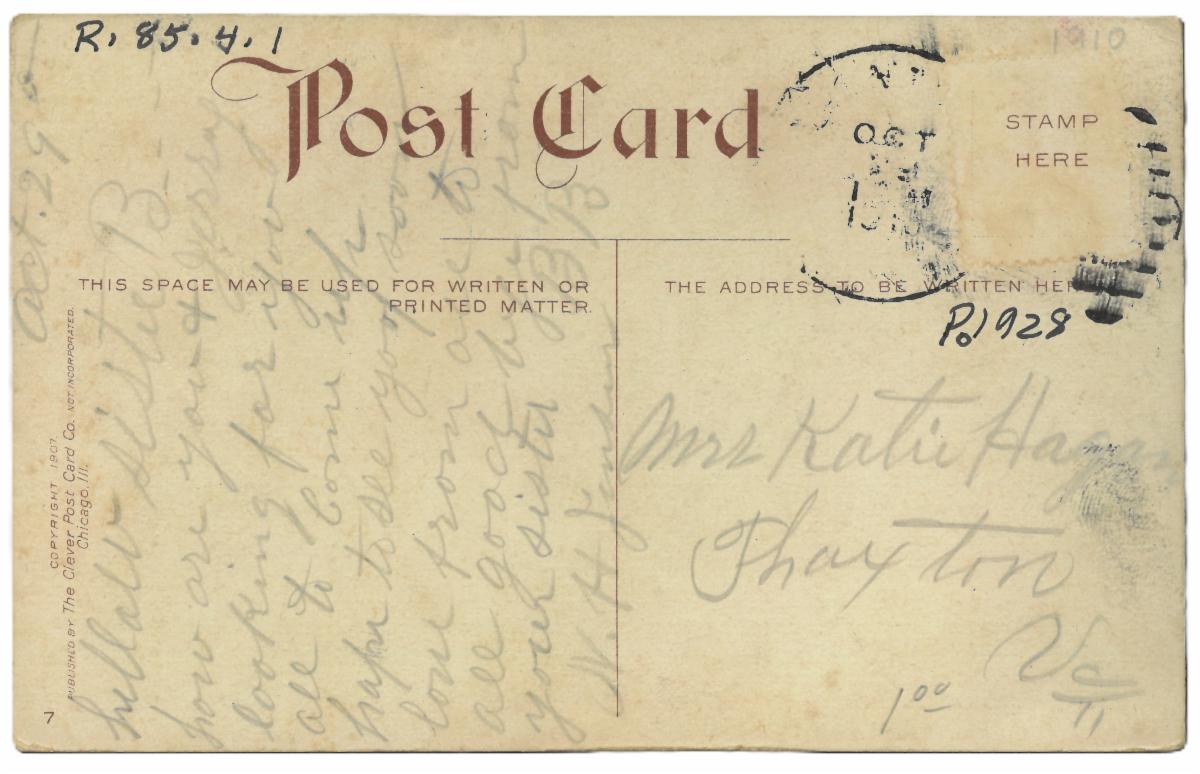 R. 85.4.1
1910
Post Card
STAMP
HERE
OCT
THIS SPACE MAY BE USED FOR WRITTEN OR
PRINTED MATTER.
THE ADDRESS TO BE WRITTEN HERE
P.1928
COPYRIGHT 1907.
PUBLISHED BY The Clever Post Card Co. NOT INCORPORATED.
Chicago, Ill.
7
Oct. 29
hellow sister B
how are you &
looking for you
all to Come up
hape to see you soon
love from all to
all good by from
your sister B B
Mrs Katie Hagan
Thaxton
Va
1 00